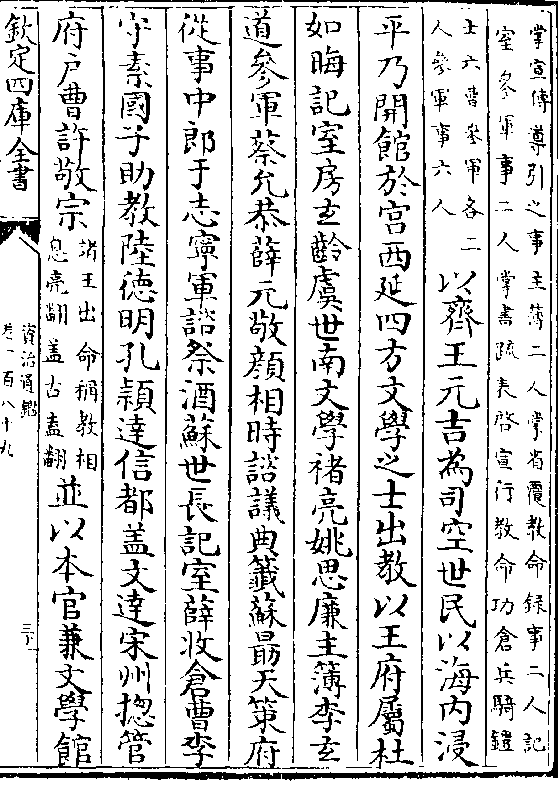 掌宣傳導引之事主薄二人掌省覆教命録事二人記
室參軍事二人掌書疏表啓宣行教命功倉兵騎鎧
士六曹參軍各二
人參軍事六人
以齊王元吉為司空世民以海内浸
平乃開館於宫西延四方文學之士出教以王府屬杜
如晦記室房玄齡虞世南文學褚亮姚思亷主簿李玄
道參軍蔡允恭薛元敬顔相時諮議典籖蘇朂天策府
從事中郎于志寧軍諮祭酒蘇世長記室薛收倉曹李
守素國子助教陸徳明孔穎逹信都盖文逹宋州揔管
府户曹許敬宗
諸王出命稱教相
息亮翻盖古盍翻
並以本官兼文學館
欽定四庫全書
資治通鑑
卷一百八十九
三下